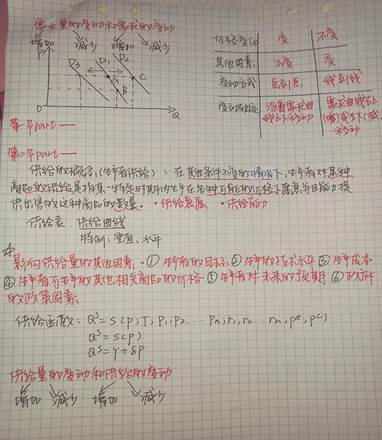 需求量的变动和需求的变动
增加 减少 增加 减少
P D3 D1 D2 A B C
O Q
价格变化 变 不变
其他因素 不变 变
变动方式 点到点 线到线
变动表现 沿着需求曲线上下移动 需求曲线右(增)或左(减)移动
第一节part——
第二节part——
供给的概念(生产者供给): 在其他条件不变的情况下,生产者对某种
商品的供给是指某一特定时期内生产者在各种可能的价格下愿意并且能力提
供出售的这种商品的数量。 ·供给意愿 ·供给能力
供给表 供给曲线
特例:垂直、水平
影响供给量的其他因素:①生产者的目标 ②生产的技术水平 ③生产成本
④生产者可生产的其他相关商品的价格 ⑤生产者对未来的预期 ⑥政府
的政策因素
供给函数: Qˢ=S(P,T,P1,P2...Pn,r1,r2...rm,pᵉ,pᶜ)
Qˢ=S(P)
Qˢ=γ+δP
供给量的变动和供给的变动
增加 减少 增加 减少